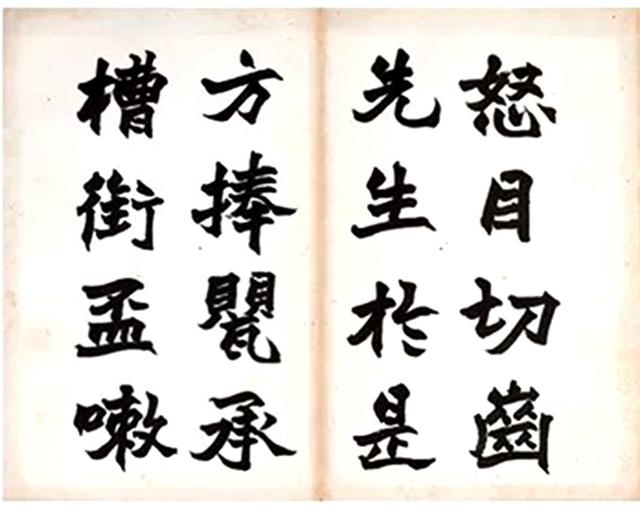 怒目切齒
先生於是
方捧甖承
槽銜盃嗽